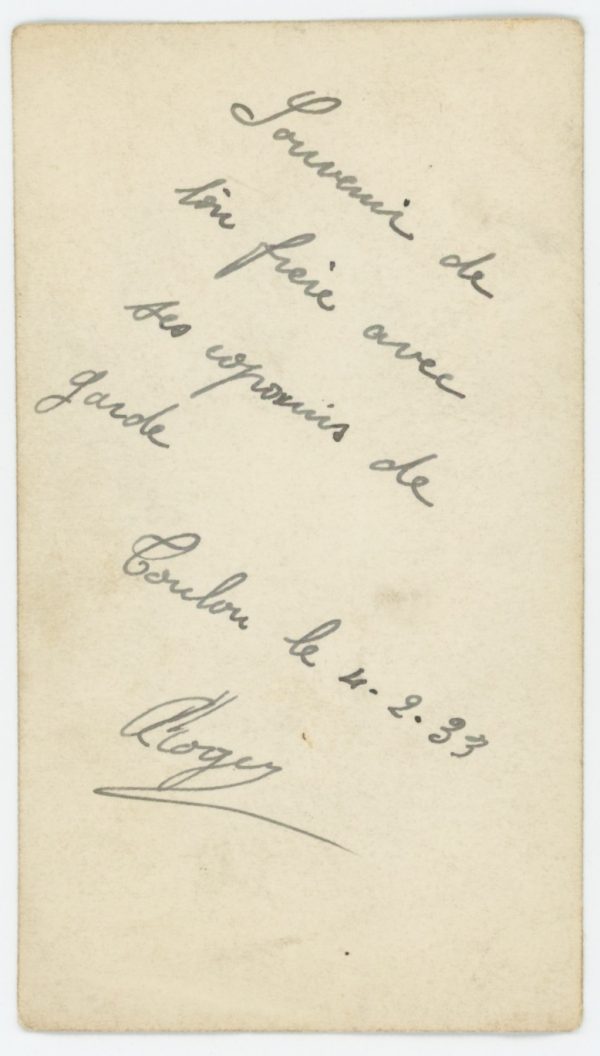 Souvenir de
ton frère avec
ses copains de
garde
Toulon le 4.2.33
Roger